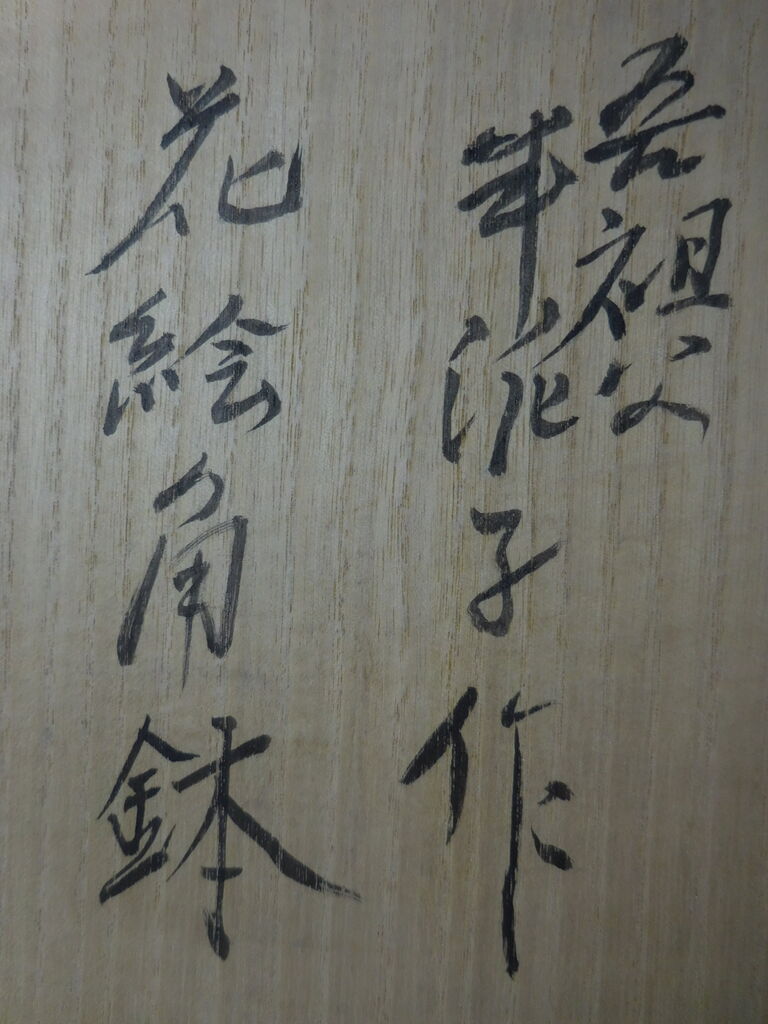 吾祖父
半泥子作
花絵角鉢